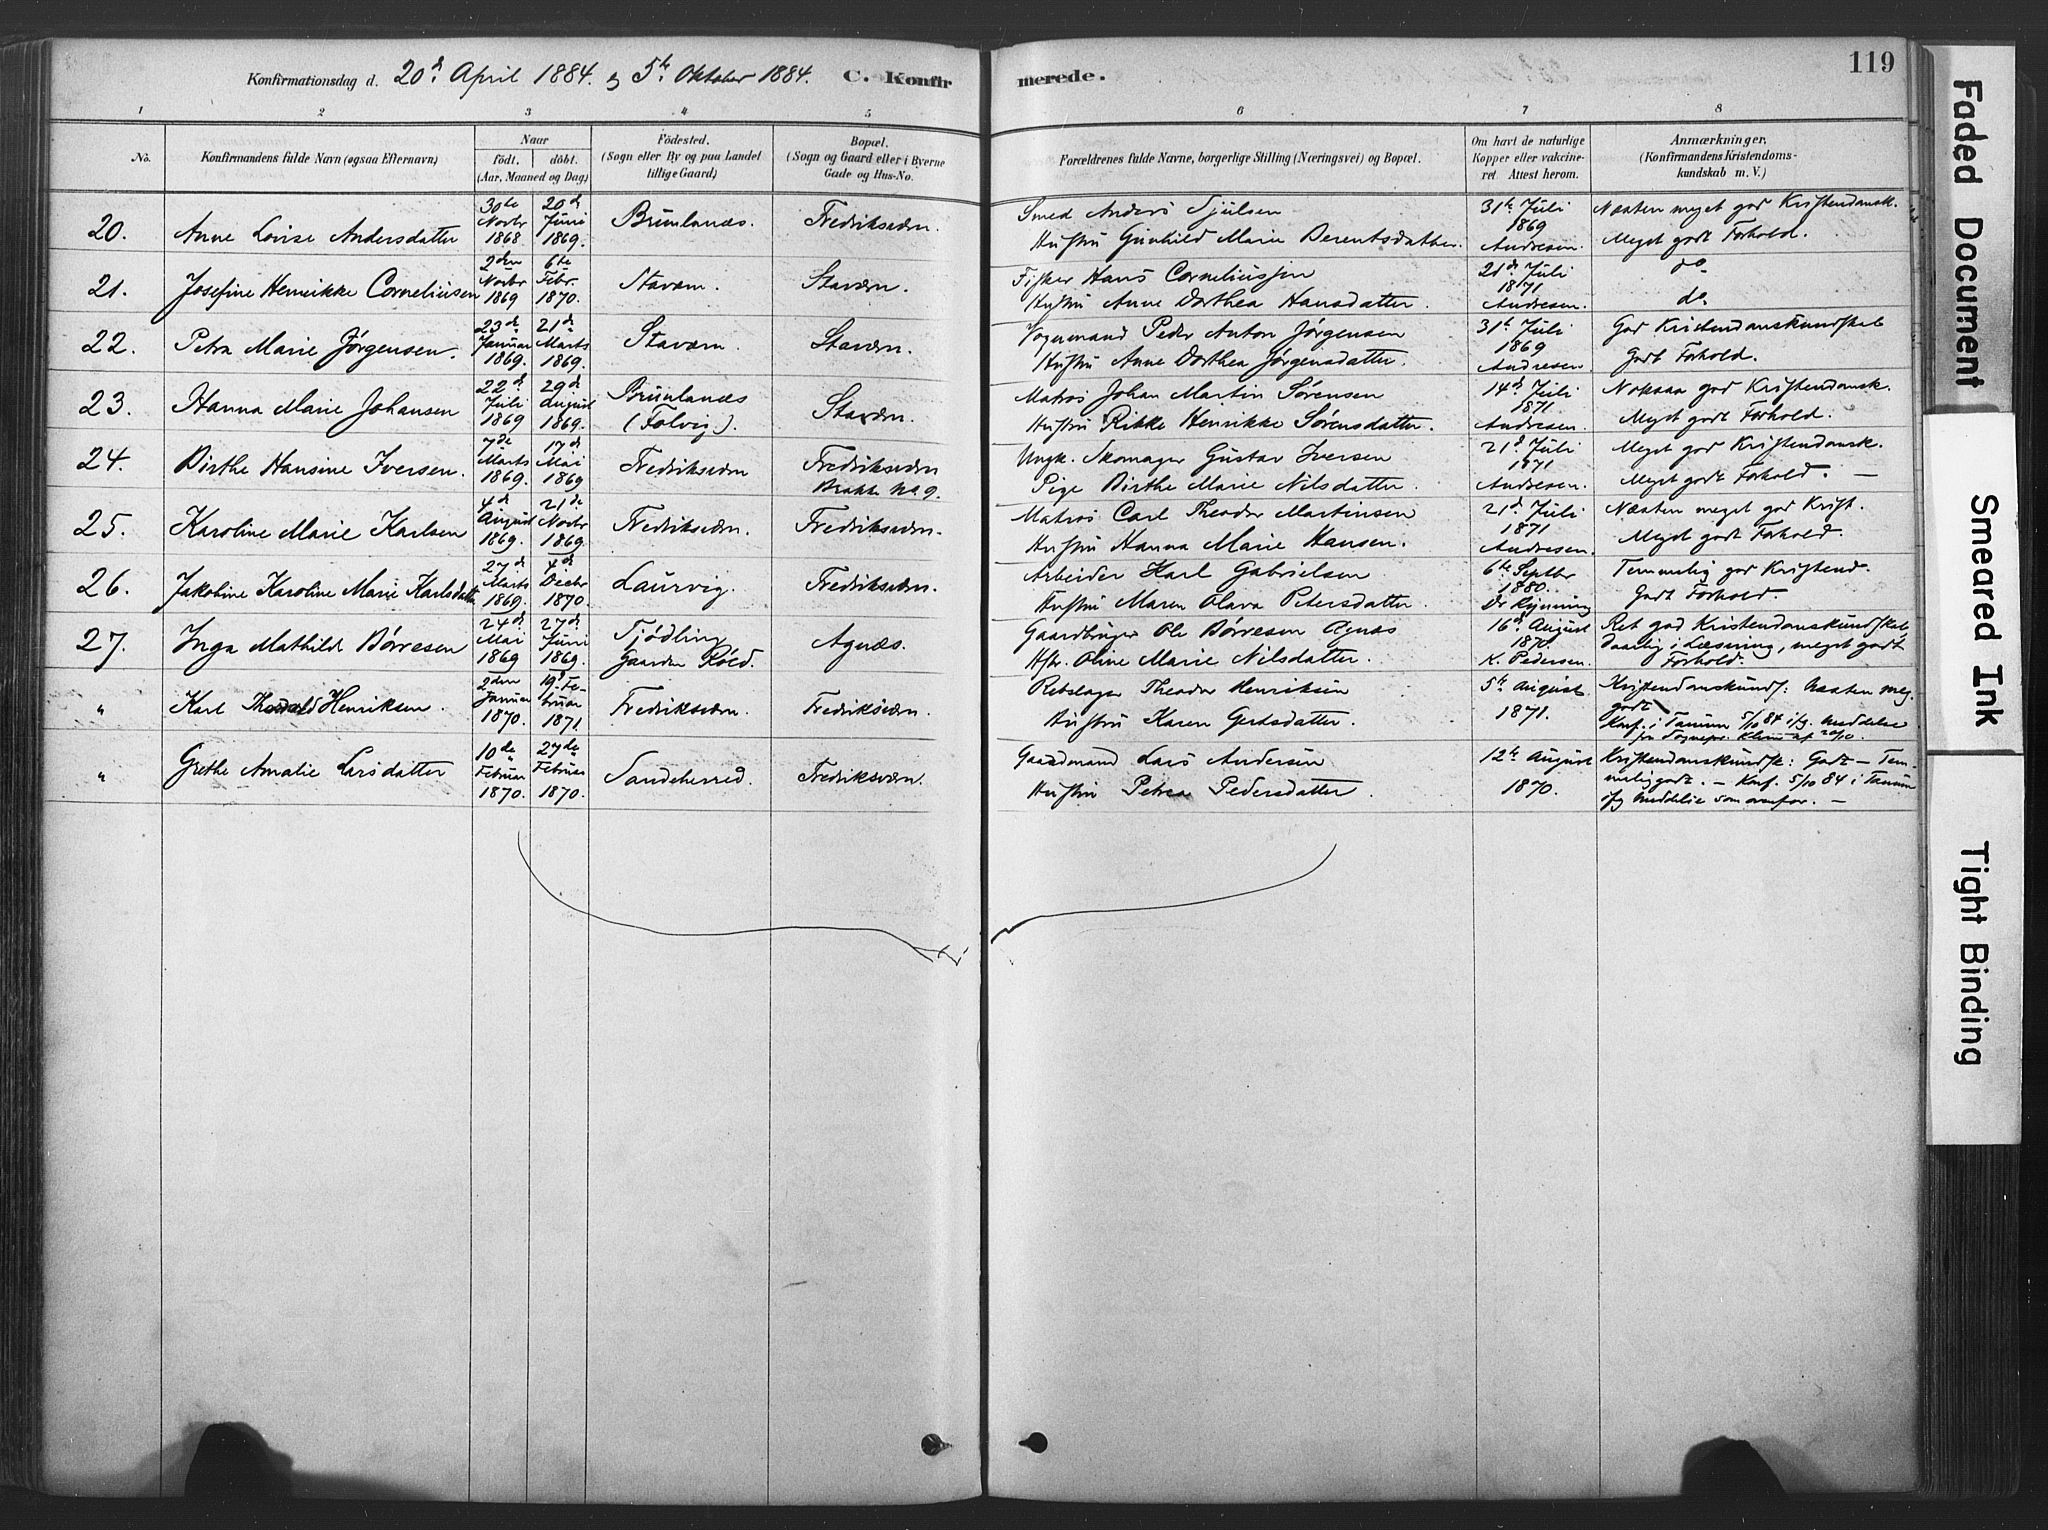 119
Konfirmationsdag d. 20d April 1884. og 5te Oktober 1884. C. Konfirmerede.
1 2 3 4 5 6 7 8
No. Konfirmandens fulde Navn (ogsaa Efternavn) Naar født, døbt. (Aar, Maaned og Dag) Fødested. (Sogn eller By og paa Landet tillige Gaard) Bopæl. (Sogn og Gaard eller i Byerne Gade og Hus-No. Forældrenes fulde Navne, borgerlige Stilling (Næringsvei) og Bopæl. Om havt de naturlige Kopper eller vakcineret. Attest herom. Anmærkninger. (Konfirmandens Kristendomskundskab m. V.)
20. Anne Lovise Andersdatter 30te Novbr 1868 20de Juni 1869. Brunlanæs. Fredriksværn. Smed Anders
Hustru Gunhild Marie Berentsdatter. 31te Juli 1869 Andresen. Næsten meget god Kristendomsk. Meget godt Forhold.
21. Josefine Henrikke Corneliusen 2den Novbr 1869 6te Febr. 1870. Staværn. Staværn. Fisker Hans Corneliussen
Hustru Anne Dorthea Hansdatter. 21de Juli 1871 Andresen. do. do.
22. Petra Marie Jørgensen. 23de Januar 1869. 21de Marts 1869. Staværn. Staværn. Vognmand Peder Anton Jørgensen
Hustru Anne Dorthea Jørgensdatter. 31te Juli 1869 Andresen. God Kristendomskundskab Godt Forhold.
23. Hanna Marie Johansen 22de Juli 1869 29de August 1869. Brunlanæs (Folvig). Staværn. Matros Johan Martin Sørensen
Hustru Rikke Henrikke Sørensdatter. 14de Juli 1871 Andresen. Noksaa god Kristendomsk. Meget godt Forhold.
24. Birthe Hansine Iversen. 7de Marts 1869. 17de Mai 1869 Fredriksværn Fredriksværn Brakke No 9. Ungk. Skomager Gustav Iversen
Pige Birthe Marie Nilsdatter. 21de Juli 1871 Andresen. Meget god Kristendomsk. Meget godt Forhold. —
25. Karoline Marie Karlsen 4de August 1869. 21de Novbr 1869. Fredriksværn. Fredriksværn. Matros Carl Theodor Martinsen
Hustru Hanna Marie Hansen. 21de Juli 1871 Andresen. Næsten meget god Krist. Meget godt Forhold.
26. Jakobine Karoline Marie Karlsdatter 27de Marts 1869. 4de Decbr 1870. Laurvig. Fredriksværn. Arbeider Karl Gabrielsen
Hustru Maren Olava Petersdatter. 6te Septbr 1880. Dr Temmelig god Kristend. Godt Forhold.
27. Inga Mathilde Børresen 24de Mai 1869 27de Juni 1869. Tjødling Gaarden Agnæs. Gaardbruger Ole Børresen Agnæs
Hstr. Oline Marie Nilsdatter. 16de August 1870. K. Pedersen. Ret god Kristendomskundskab daarlig i Læsning, meget godt Forhold.
" Karl Henriksen. 2den Januar 1870. 19de Februar 1871. Fredriksværn. Fredriksværn. Rebslager Theodor Henriksen
Hustru Karen Gertsdatter. 5te August 1871. Kristendomskundsk: Næsten meg. godt Konf. i Tanum 5/10 84 ifg. Meddelse fra Sognepr. 20/10.
" Grethe Amalie Larsdatter 10de Februar 1870. 27de Februar 1870. Sandeherred. Fredriksværn. Gaardmand Lars Andersen
Hustru Petrea Pedersdatter. 12te August 1870. Kristendomskundsk: Godt — Temmelig godt. — Konf. 5/10 84 i Tanum ifg Meddelse som ovenfor. —
Faded Document
Smeared Ink
Tight Binding